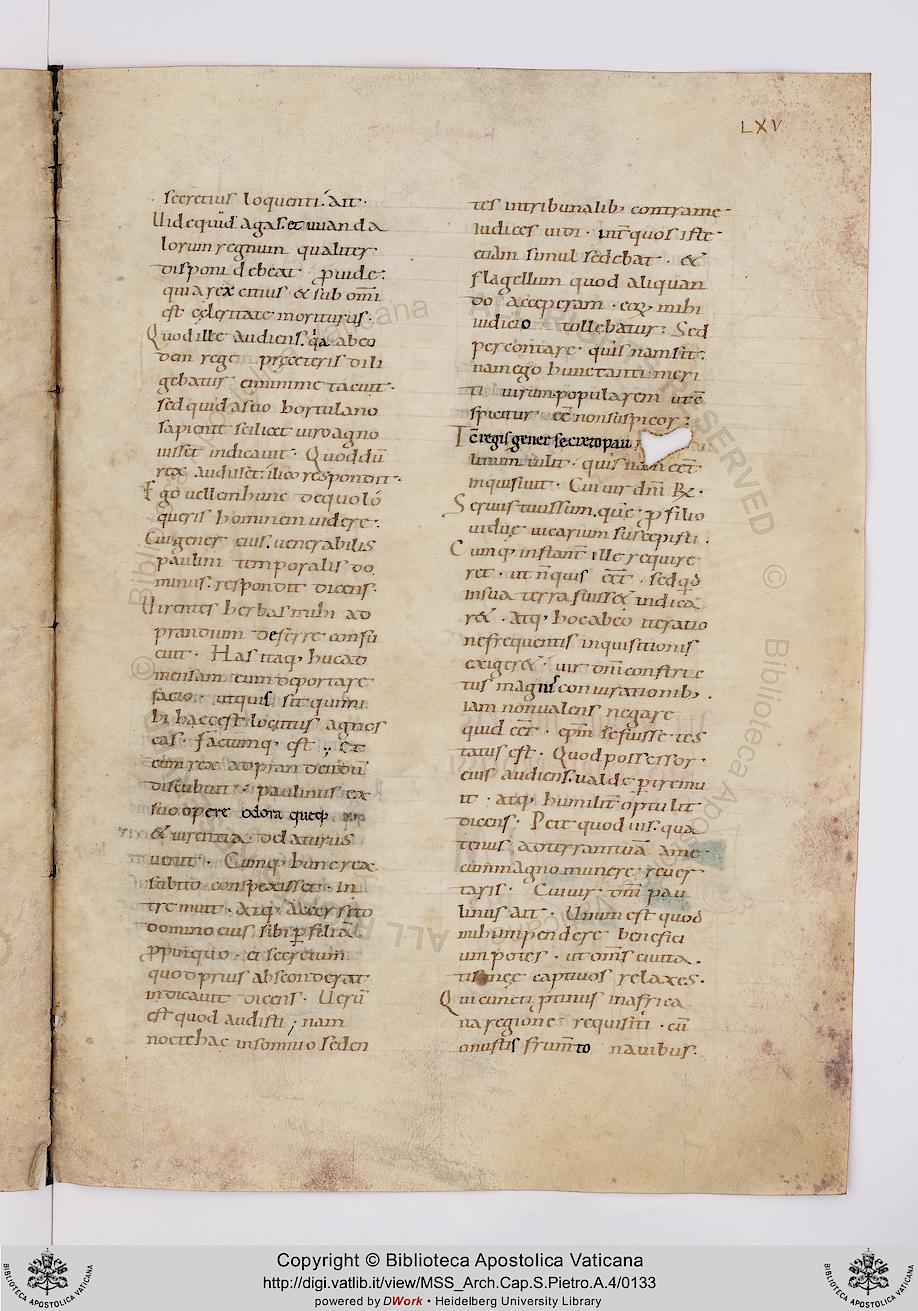 LXV
secretius loquenti. ait.
Uide quid agas. et uuanda
lorum regnum qualiter
disponi debeat puide.
quia rex citius & sub omi
est celeritate moriturus.
Quod ille audiens. qa abeo
dem rege pceteris dili
gebatur eimnime tacuit.
sed quid asuo hortulano
sapiente scilicet uiro agno
uisset indicauit. Quod dū
rex audisset. ilico respondit.
Ego uellem hunc dequo lo
queris hominem uidere.
Cui gener eius. uenerabilis
paulini temporalis do
minus. respondit dicens.
Uirentes herbas mihi ad
prandium deferre consu
euit. Has itaq; huc ad
mensam eum deportare
facio. ut quis sit quimi
hi hec est locutus agnos
cas. factumq; est. Et
cum rex ad prandendū
discubuit. paulinus ex
suo opere odora queq;
& uirentia delaturus
uenit. Cumq; hunc rex
subito conspexisset. In
tremuit. atq; accersito
domino eius. sibi p filiā
ppinquo. ei secretum
quod prius absconderat
indicauit dicens. Uerū
est quod audisti; nam
nocte hac insomnio seden
tes intribunalib; contra me
iudices uidi. int quos iste
etiam simul sedebat. &
flagellum quod aliquan
do acceperam. eoz mihi
iudicio tollebatur. Sed
percontare quis nam sit.
nam ego hunc tanti meri
ti uirum popularem ut c̄
spicitur. eē non suspicor.
Tc̄ regis gener secreto pau
linum tulit. quis nam eēt
inquisiuit. Cui uir dnī R̄.
Seruus tuus sum. que p filio
uidue uicarium suscepisti.
Cumq; instant ille require
ret. ut n̄ quis eēt. sed qd
insua terra fuiss& indica
r&. atq; hoc abeo iteratio
ne frequentis inquisitionis
exiger&. uir dnī constric
tus magnis coniurationib;.
iam non ualens negare
quid eēt. epm se fuisse tes
tatus est. Quod possessor
eius audiens. ualde ptimu
it. atq; humilit optulit
dicens. Pete quod uis. qua
tenus adterram tuā a me
cum magno munere reuer
taris. Cui uir dnī pau
linus ait. Unum est quod
mihi impendere benefici
um potes. ut omīs ciuita.
tis mee captiuos relaxes.
Qui cuncti ptinus in africa
na regione requisiti. cū
onustis frumto nauibus.
Copyright © Biblioteca Apostolica Vaticana
http://digi.vatlib.it/view/MSS_Arch.Cap.S.Pietro.A.4/0133
powered by DWork • Heidelberg University Library